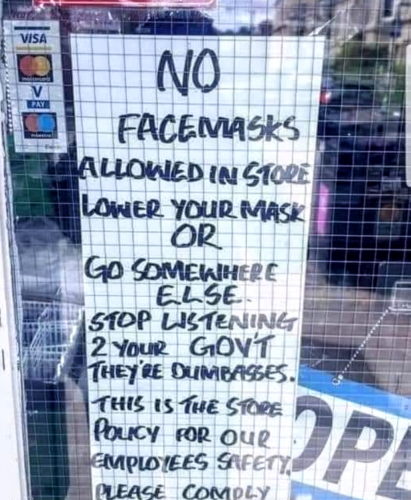 VISA
mastercard
V
PAY
maestro
NO
FACEMASKS
ALLOWED IN STORE
LOWER YOUR MASK
OR
GO SOMEWHERE
ELSE.
STOP LISTENING
2 YOUR GOV'T
THEY'RE DUMBASSES.
THIS IS THE STORE
POLICY FOR OUR
EMPLOYEES SAFETY.
PLEASE COMPLY
OPE